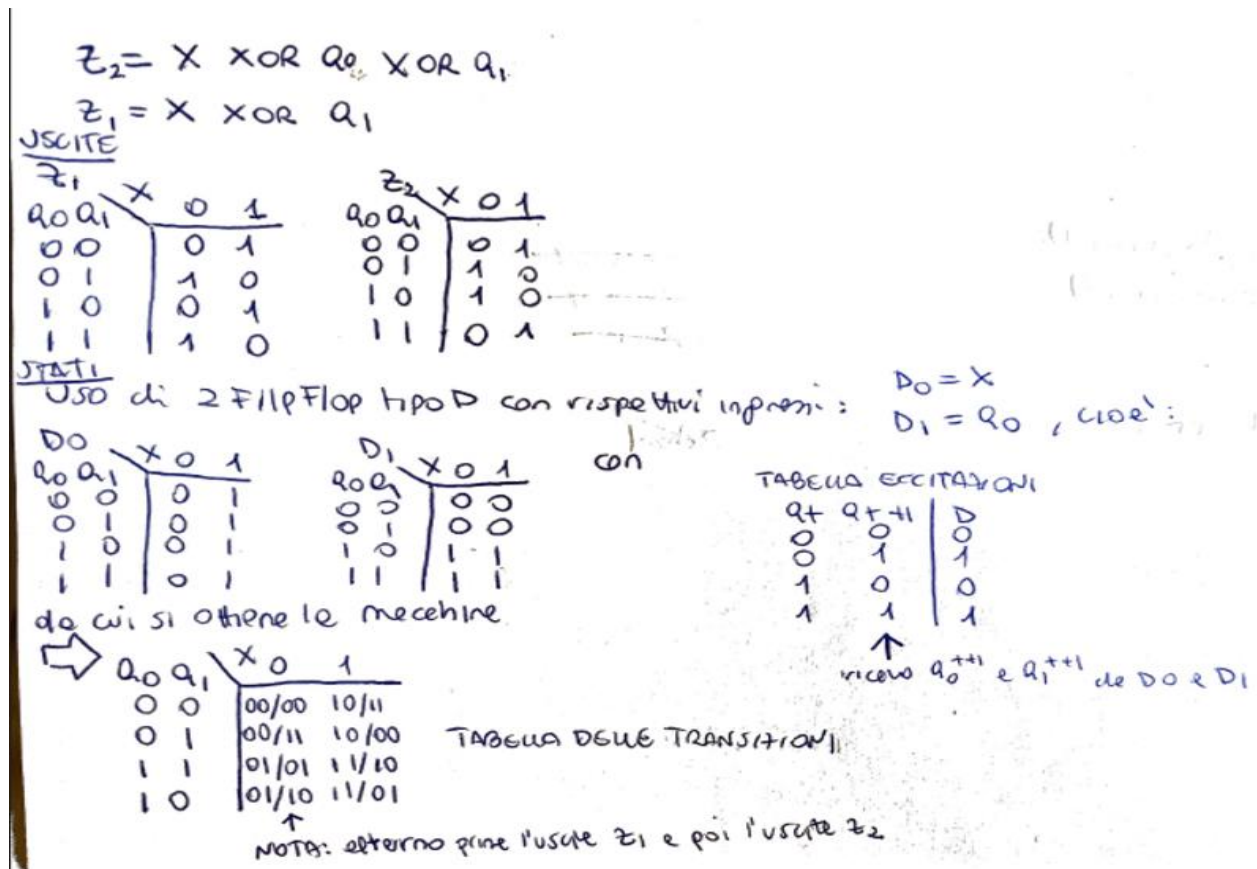 Z2 = X XOR Q0 XOR Q1
Z1 = X XOR Q1
USCITE
Z1 X 0 1
Q0 Q1
0 0 0 1
0 1 1 0
1 0 0 1
1 1 1 0
Z2 X 0 1
Q0 Q1
0 0 0 1
0 1 1 0
1 0 1 0
1 1 0 1
STATI
Uso di 2 FlipFlop tipo D con rispettivi ingressi: D0 = X
D1 = Q0, cioè:
D0 X 0 1
Q0 Q1
0 0 0 1
0 1 0 1
1 0 0 1
1 1 0 1
D1 X 0 1
Q0 Q1
0 0 0 0
0 1 0 0
1 0 1 1
1 1 1 1
con
TABELLA ECCITAZIONI
Qt Qt+1 D
0 0 0
0 1 1
1 0 0
1 1 1
↑
ricavo Q0^t+1 e Q1^t+1 da D0 e D1
da cui si ottiene la macchina
⇒ Q0 Q1 X 0 1
0 0 00/00 10/11
0 1 00/11 10/00
1 1 01/01 11/10
1 0 01/10 11/01
TABELLA DELLE TRANSIZIONI
↑
NOTA: prima l'uscita Z1 e poi l'uscita Z2